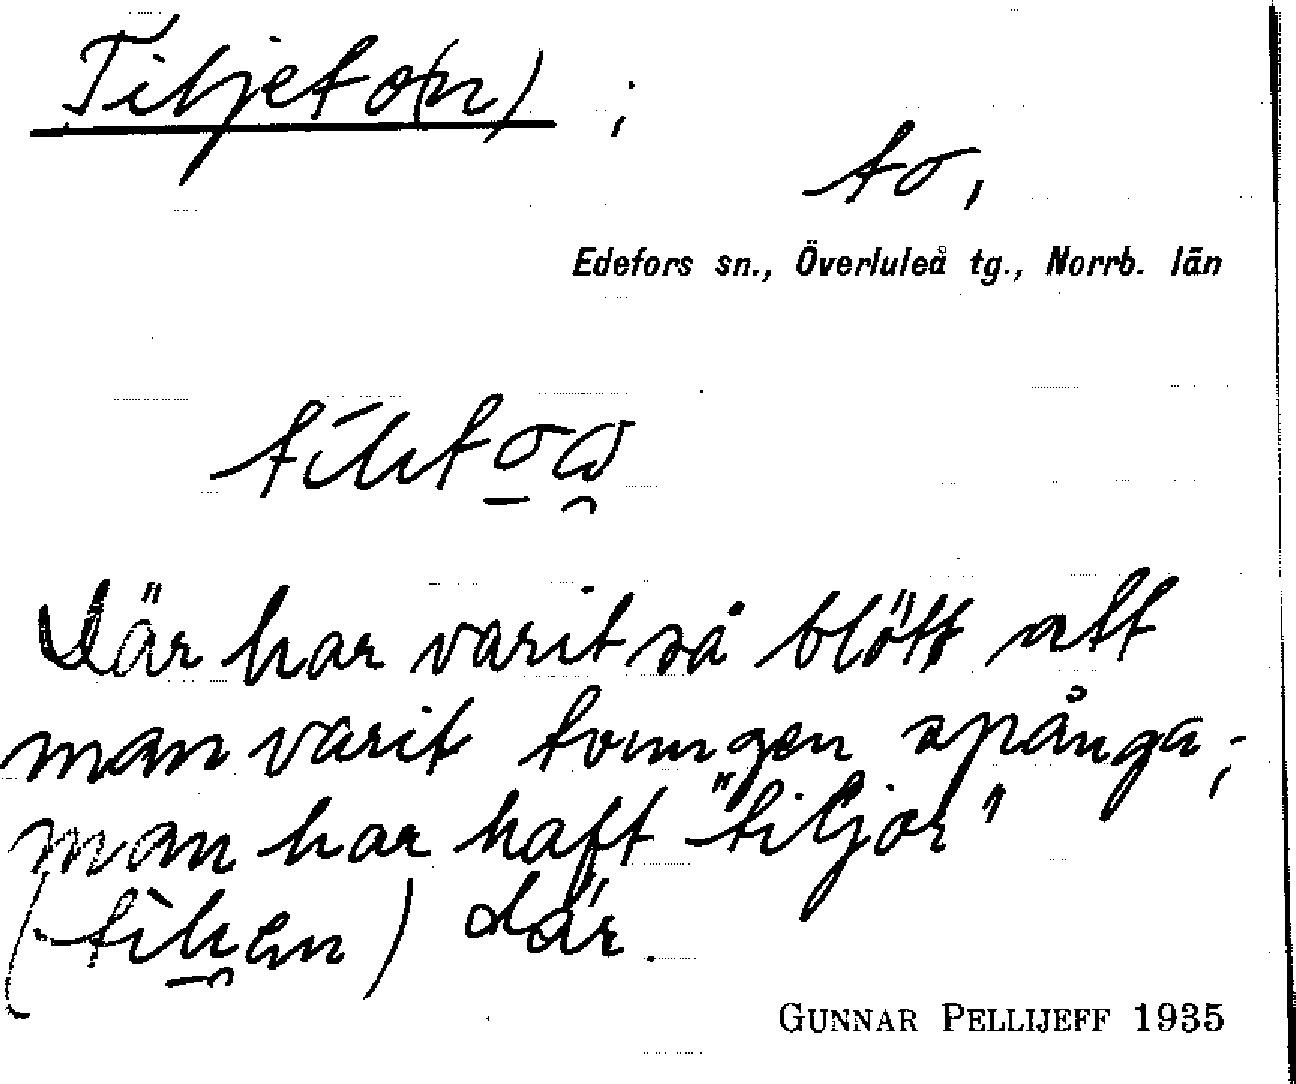 Tiljeto(n) ;
to,
Edefors sn., Överluleå tg., Norrb. län
Där har varit så blött att
man varit tvungen spånga,;
man har haft "tiljor"
där.
GUNNAR PELLIJEFF 1935